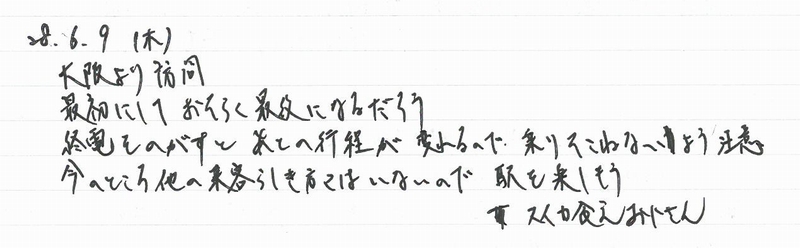 28.6.9 (木)
大阪より訪問
最初にして おそらく最後になるだろう
終電をのがすと あとの行程が変わるので、乗りそこねないよう注意
今のところ他の来客らしき方はいないので 駅を楽しもう
スイカ食えおじさん